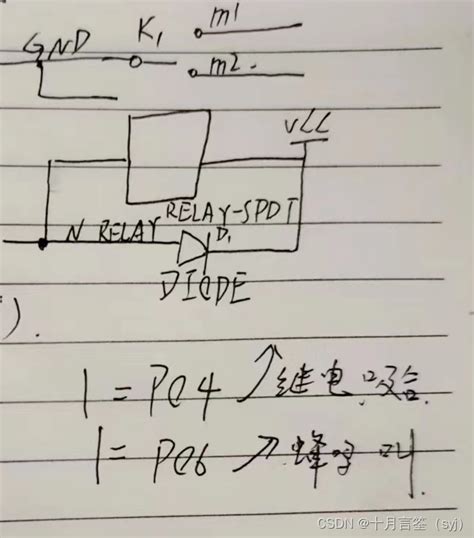 GND K1 m1
m2.
VCC
RELAY-SPDT
N RELAY D1
DIODE
).
1 = PC4 ↗ 继电吸合.
1 = PC6 ↗ 蜂鸣叫.
CSDN @十月言筌（syj）